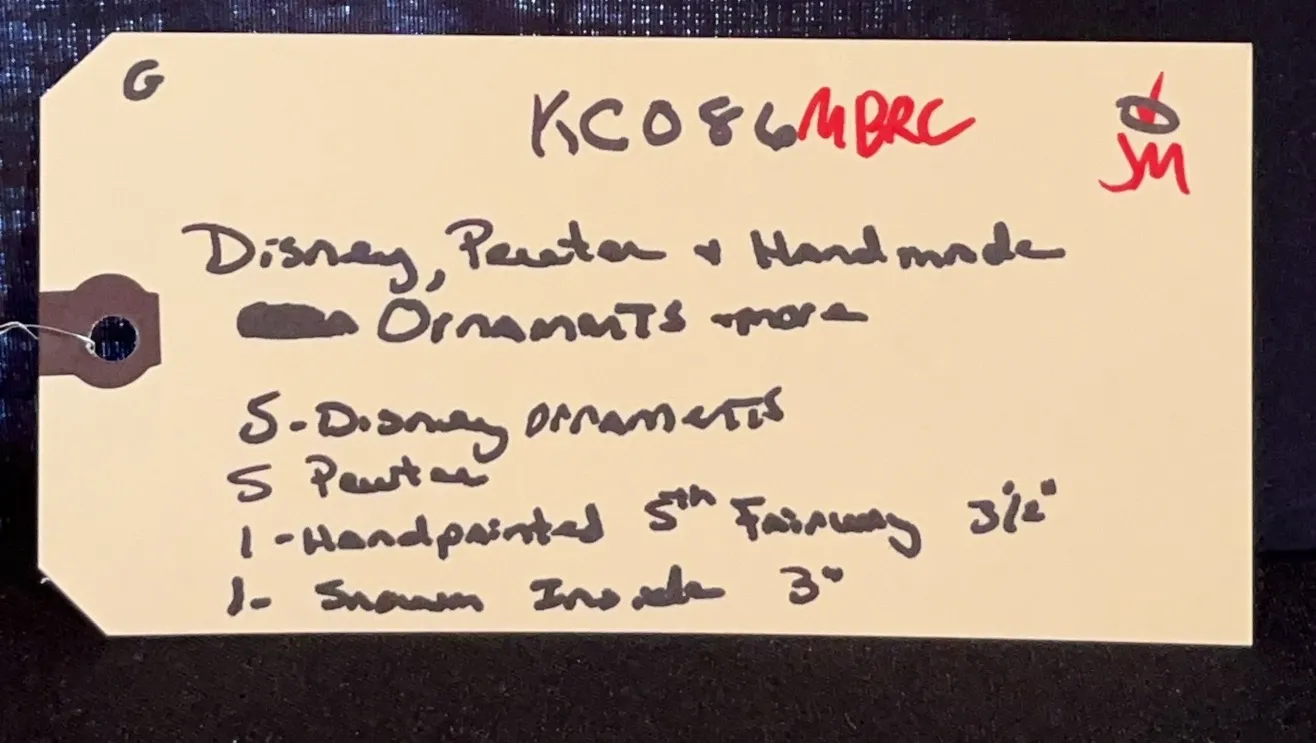 G
KC086 MBRC
JM
Disney, Pewter & Handmade
Ornaments + more
5-Disney ornaments
5 Pewter
1-Handpainted 5th Fairway 3½"
1- Inside 3"